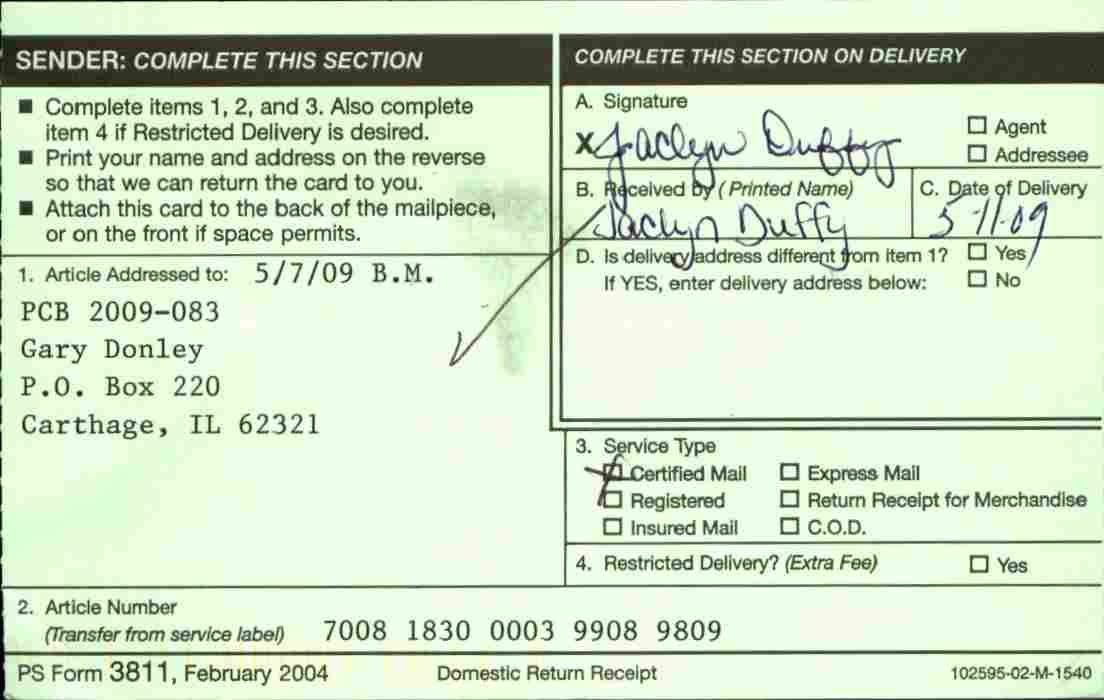 SENDER: COMPLETE THIS SECTION
■ Complete items 1, 2, and 3. Also complete
item 4 if Restricted Delivery is desired.
■ Print your name and address on the reverse
so that we can return the card to you.
■ Attach this card to the back of the mailpiece,
or on the front if space permits.
1. Article Addressed to: 5/7/09 B.M.
PCB 2009-083
Gary Donley
P.O. Box 220
Carthage, IL 62321
2. Article Number
(Transfer from service label) 7008 1830 0003 9908 9809
COMPLETE THIS SECTION ON DELIVERY
A. Signature
X Jaclyn Duffy
☐ Agent
☐ Addressee
B. Received by (Printed Name)
Jaclyn Duffy
C. Date of Delivery
5-11-09
D. Is delivery address different from item 1? ☐ Yes
If YES, enter delivery address below: ☐ No
3. Service Type
☒ Certified Mail ☐ Express Mail
☐ Registered ☐ Return Receipt for Merchandise
☐ Insured Mail ☐ C.O.D.
4. Restricted Delivery? (Extra Fee) ☐ Yes
PS Form 3811, February 2004 Domestic Return Receipt 102595-02-M-1540